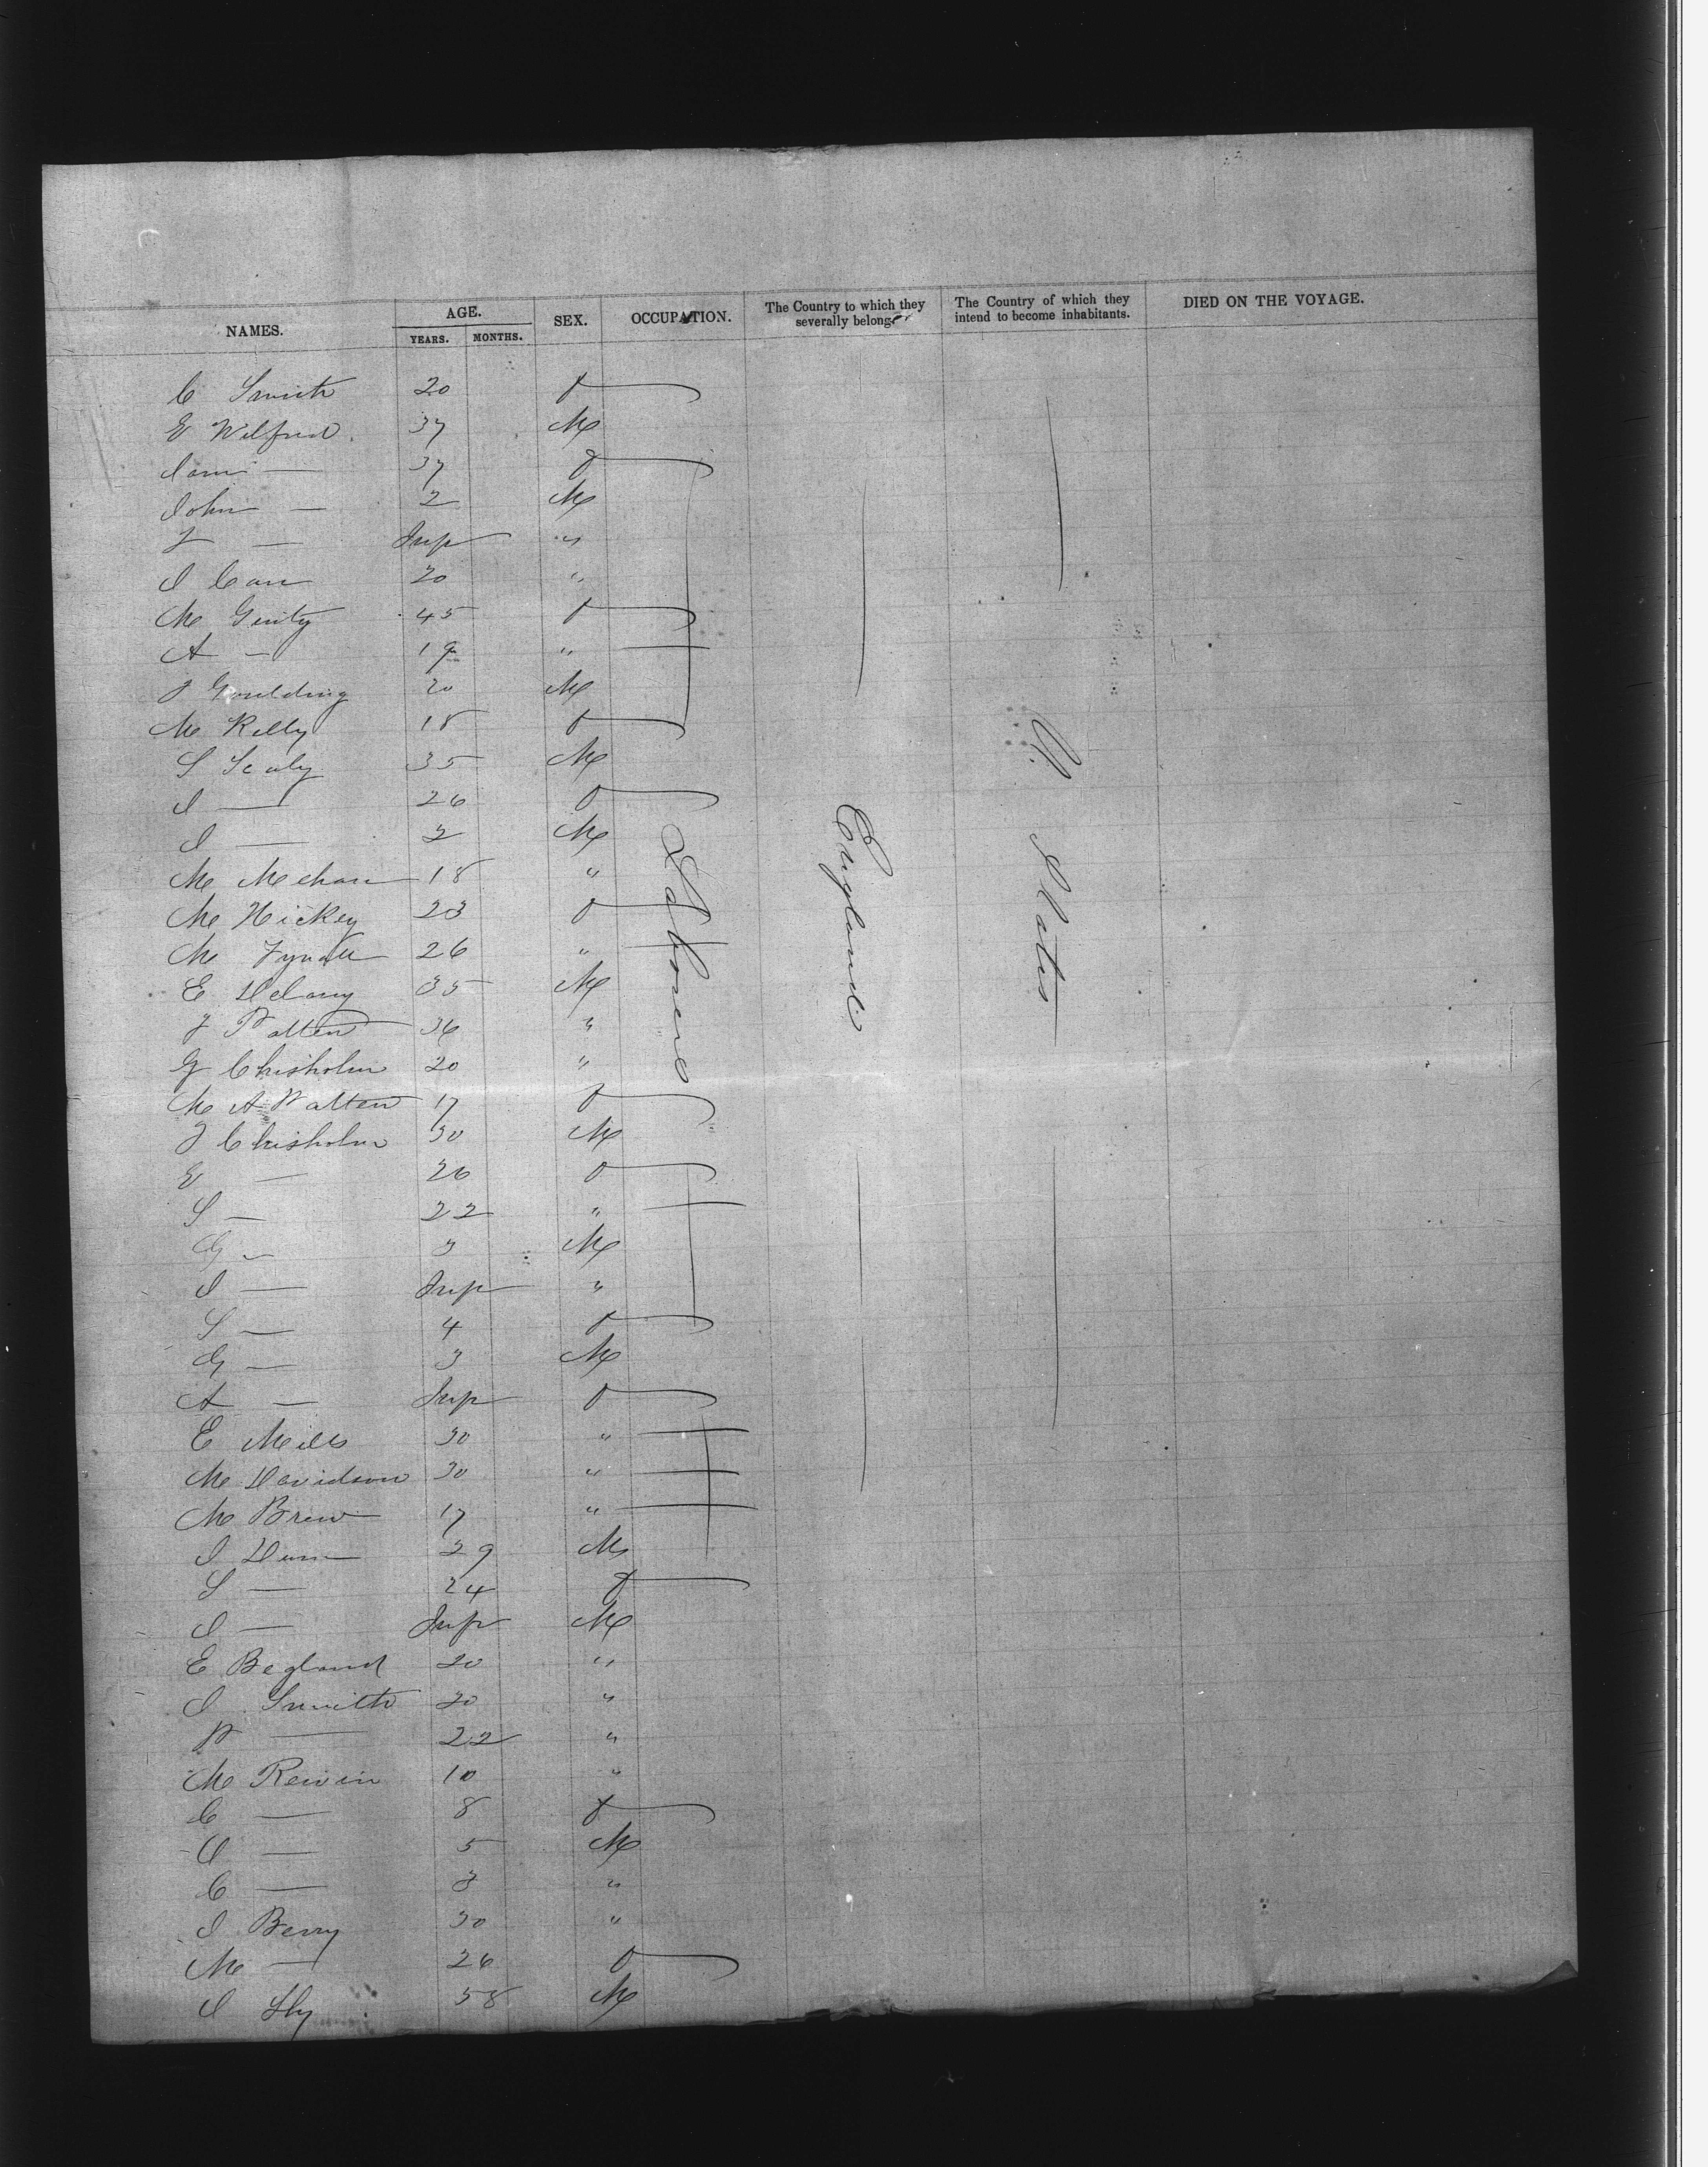 NAMES. AGE. SEX. OCCUPATION. The Country to which they severally belong. The Country of which they intend to become inhabitants. DIED ON THE VOYAGE.
YEARS. MONTHS.
C Smith 20 f
E Wilfred 37 M
Jam — 37 f
John — 2 M
J — Inf "
J Carr 20 "
M Ginty 45 f
A — 19 "
J Goulding 20 M
M Kelly 18 f
S Scaly 35 M
J — 26 f
J — 2 M
M Mehan 18 "
M Hickey 23 f
M 26 "
E Delany 35 M
J Patten 36 "
G Chisholm 20 "
M A Patten 17 f
J Chisholm 30 M
E — 26 f
S — 22 "
G — 3 M
J — Inf "
S — 4 f
G — 3 M
A — Inf f
E Mills 30 "
M Davidson 30 "
M Brew 17 "
J Dunn 29 M
S — 24 f
J — Inf M
E Begland 20 "
J Smith 20 "
P — 22 "
M 10 "
C — 8 f
J — 5 M
C — 3 "
J Berry 30 "
M — 26 f
J 58 M
Laborers
England
U. States